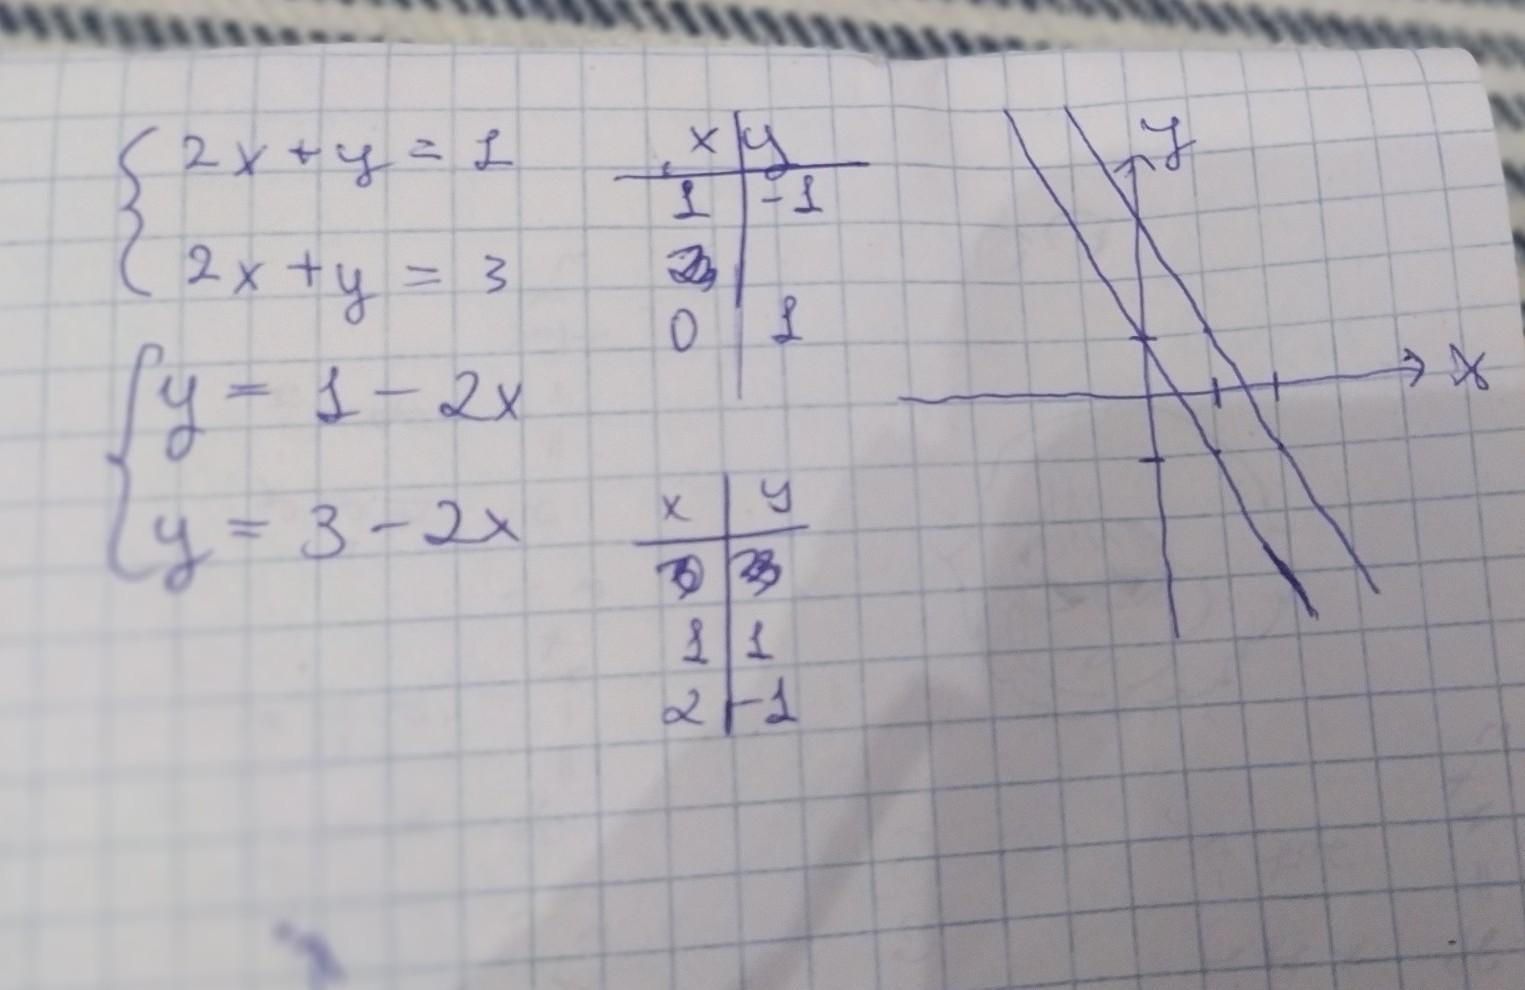 2x + y = 1
2x + y = 3
y = 1 - 2x
y = 3 - 2x
x y
1 -1
0 1
x y
1 1
2 -1
y
x